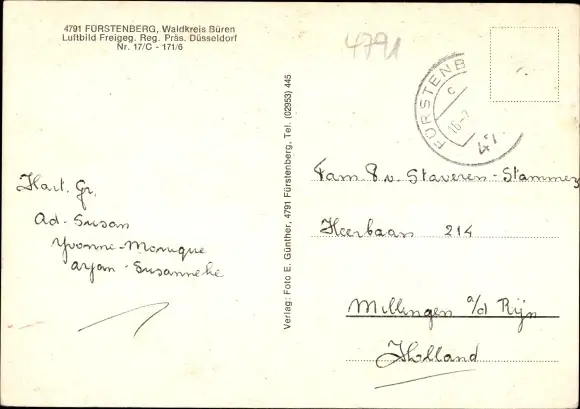 4791 FÜRSTENBERG, Waldkreis Büren
Luftbild Freigeg. Reg. Präs. Düsseldorf
Nr. 17/C - 171/6
4791
FÜRSTENB
c
16-7
Hart. Gr.
Ad - Susan
Yvonne - Monique
Arjan - Susanneke
Verlag: Foto E. Günther, 4791 Fürstenberg, Tel. (02953) 445
Fam P v. Staveren - Stammez
Heerbaan 214
Millingen a/d Rijn
Holland